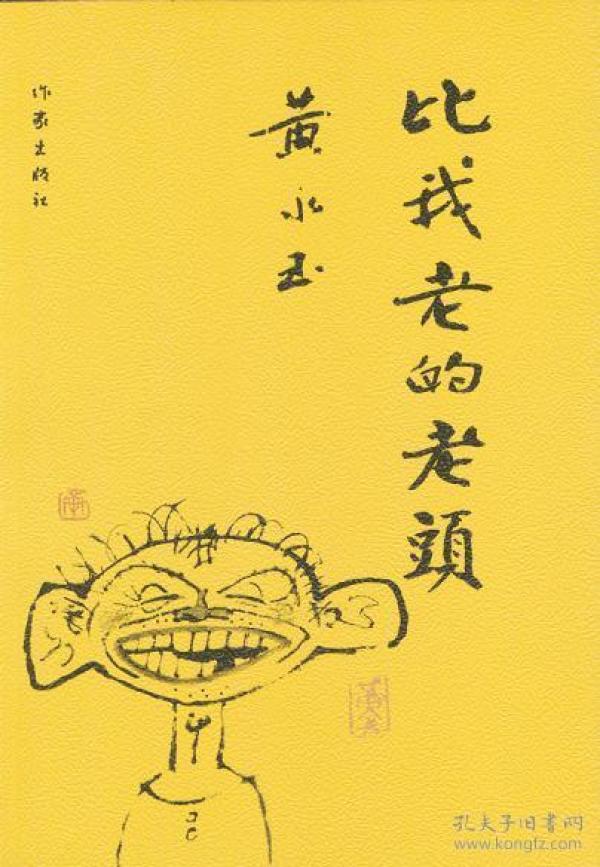 比我老的老頭
黄永玉
作家出版社
孔夫子旧書网
www.kongfz.com